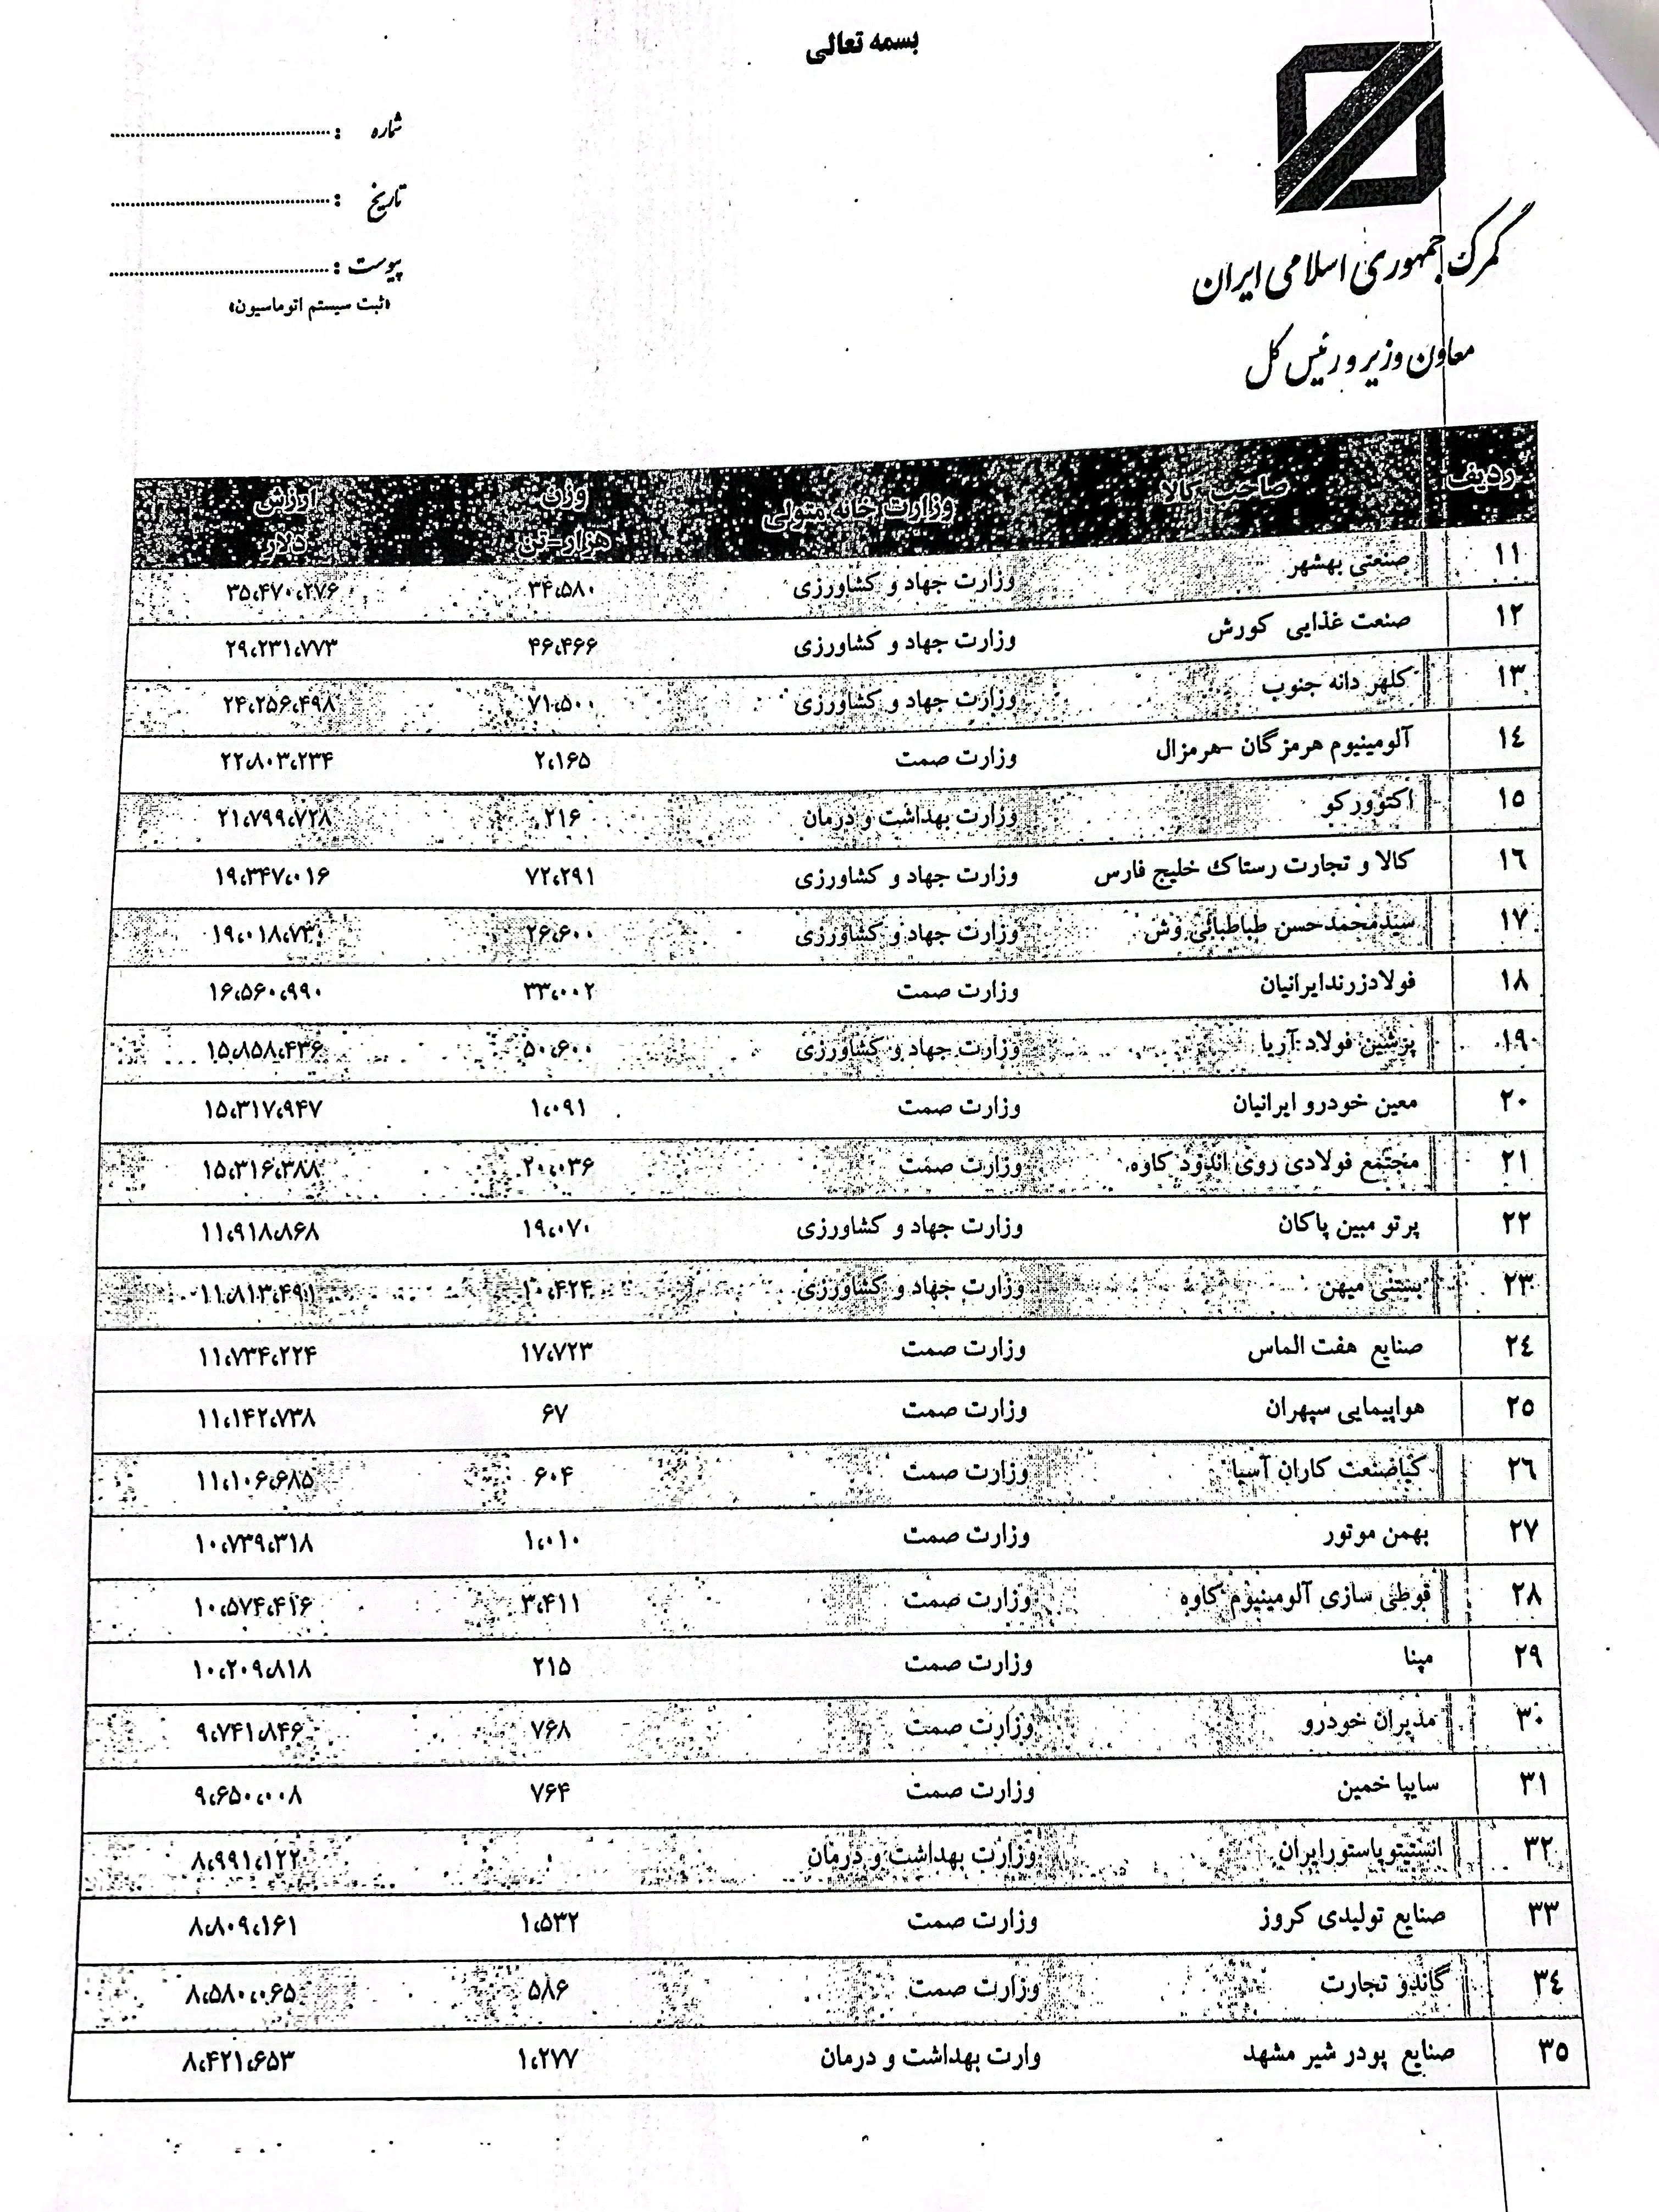 بسمه تعالی
گمرک جمهوری اسلامی ایران
معاون وزیر و رئیس کل
شماره :
تاریخ :
پیوست :
«ثبت سیستم اتوماسیون»
ردیف صاحب کالا وزارت خانه متولی وزن هزار-تن ارزش دلار
۱۱ صنعتی بهشهر وزارت جهاد و کشاورزی ۳۴،۵۸۰ ۳۵،۴۷۰،۲۷۶
۱۲ صنعت غذایی کورش وزارت جهاد و کشاورزی ۴۶،۴۶۶ ۲۹،۲۳۱،۷۷۳
۱۳ کلهر دانه جنوب وزارت جهاد و کشاورزی ۷۱،۵۰۰ ۲۴،۲۵۶،۴۹۸
۱٤ آلومینیوم هرمزگان -هرمزال وزارت صمت ۲،۱۶۵ ۲۲،۸۰۳،۲۳۴
۱۵ اکتوورکو وزارت بهداشت و درمان ۲۱۶ ۲۱،۷۹۹،۷۲۸
۱٦ کالا و تجارت رستاک خلیج فارس وزارت جهاد و کشاورزی ۷۲،۲۹۱ ۱۹،۳۴۷،۰۱۶
۱۷ سیدمحمدحسن طباطبائی وش وزارت جهاد و کشاورزی ۲۶،۶۰۰
۱۸ فولادزرندایرانیان وزارت صمت ۳۳،۰۰۲ ۱۶،۵۶۰،۹۹۰
۱۹ پرشین فولاد آریا وزارت جهاد و کشاورزی ۵۰،۶۰۰ ۱۵،۸۵۸،۴۳۶
۲۰ معین خودرو ایرانیان وزارت صمت ۱،۰۹۱ ۱۵،۳۱۷،۹۴۷
۲۱ مجتمع فولادی روی اندود کاوه وزارت صمت ۲۰،۰۳۶ ۱۵،۳۱۶،۳۸۸
۲۲ پرتو مبین پاکان وزارت جهاد و کشاورزی ۱۹،۰۷۰ ۱۱،۹۱۸،۸۶۸
۲۳ بستنی میهن وزارت جهاد و کشاورزی ۱۰،۴۲۴ ۱۱،۸۱۳،۴۹۱
۲٤ صنایع هفت الماس وزارت صمت ۱۷،۷۲۳ ۱۱،۷۳۴،۲۲۴
۲۵ هواپیمایی سپهران وزارت صمت ۶۷ ۱۱،۱۴۲،۷۳۸
۲٦ کیاصنعت کاران آسیا وزارت صمت ۶۰۴ ۱۱،۱۰۶،۶۸۵
۲۷ بهمن موتور وزارت صمت ۱،۰۱۰ ۱۰،۷۳۹،۳۱۸
۲۸ قوطی سازی آلومینیوم کاوه وزارت صمت ۳،۴۱۱ ۱۰،۵۷۴،۴۱۶
۲۹ مپنا وزارت صمت ۲۱۵ ۱۰،۲۰۹،۸۱۸
۳۰ مدیران خودرو وزارت صمت ۷۶۸ ۹،۷۴۱،۸۴۶
۳۱ سایپا خمین وزارت صمت ۷۶۴ ۹،۶۵۰،۰۰۸
۳۲ انستیتوپاستورایران وزارت بهداشت و درمان ۰ ۸،۹۹۱،۱۲۲
۳۳ صنایع تولیدی کروز وزارت صمت ۱،۵۳۲ ۸،۸۰۹،۱۶۱
۳٤ گاندو تجارت وزارت صمت ۵۸۶ ۸،۵۸۰،۰۶۵
۳۵ صنایع پودر شیر مشهد وارت بهداشت و درمان ۱،۲۷۷ ۸،۴۲۱،۶۵۳